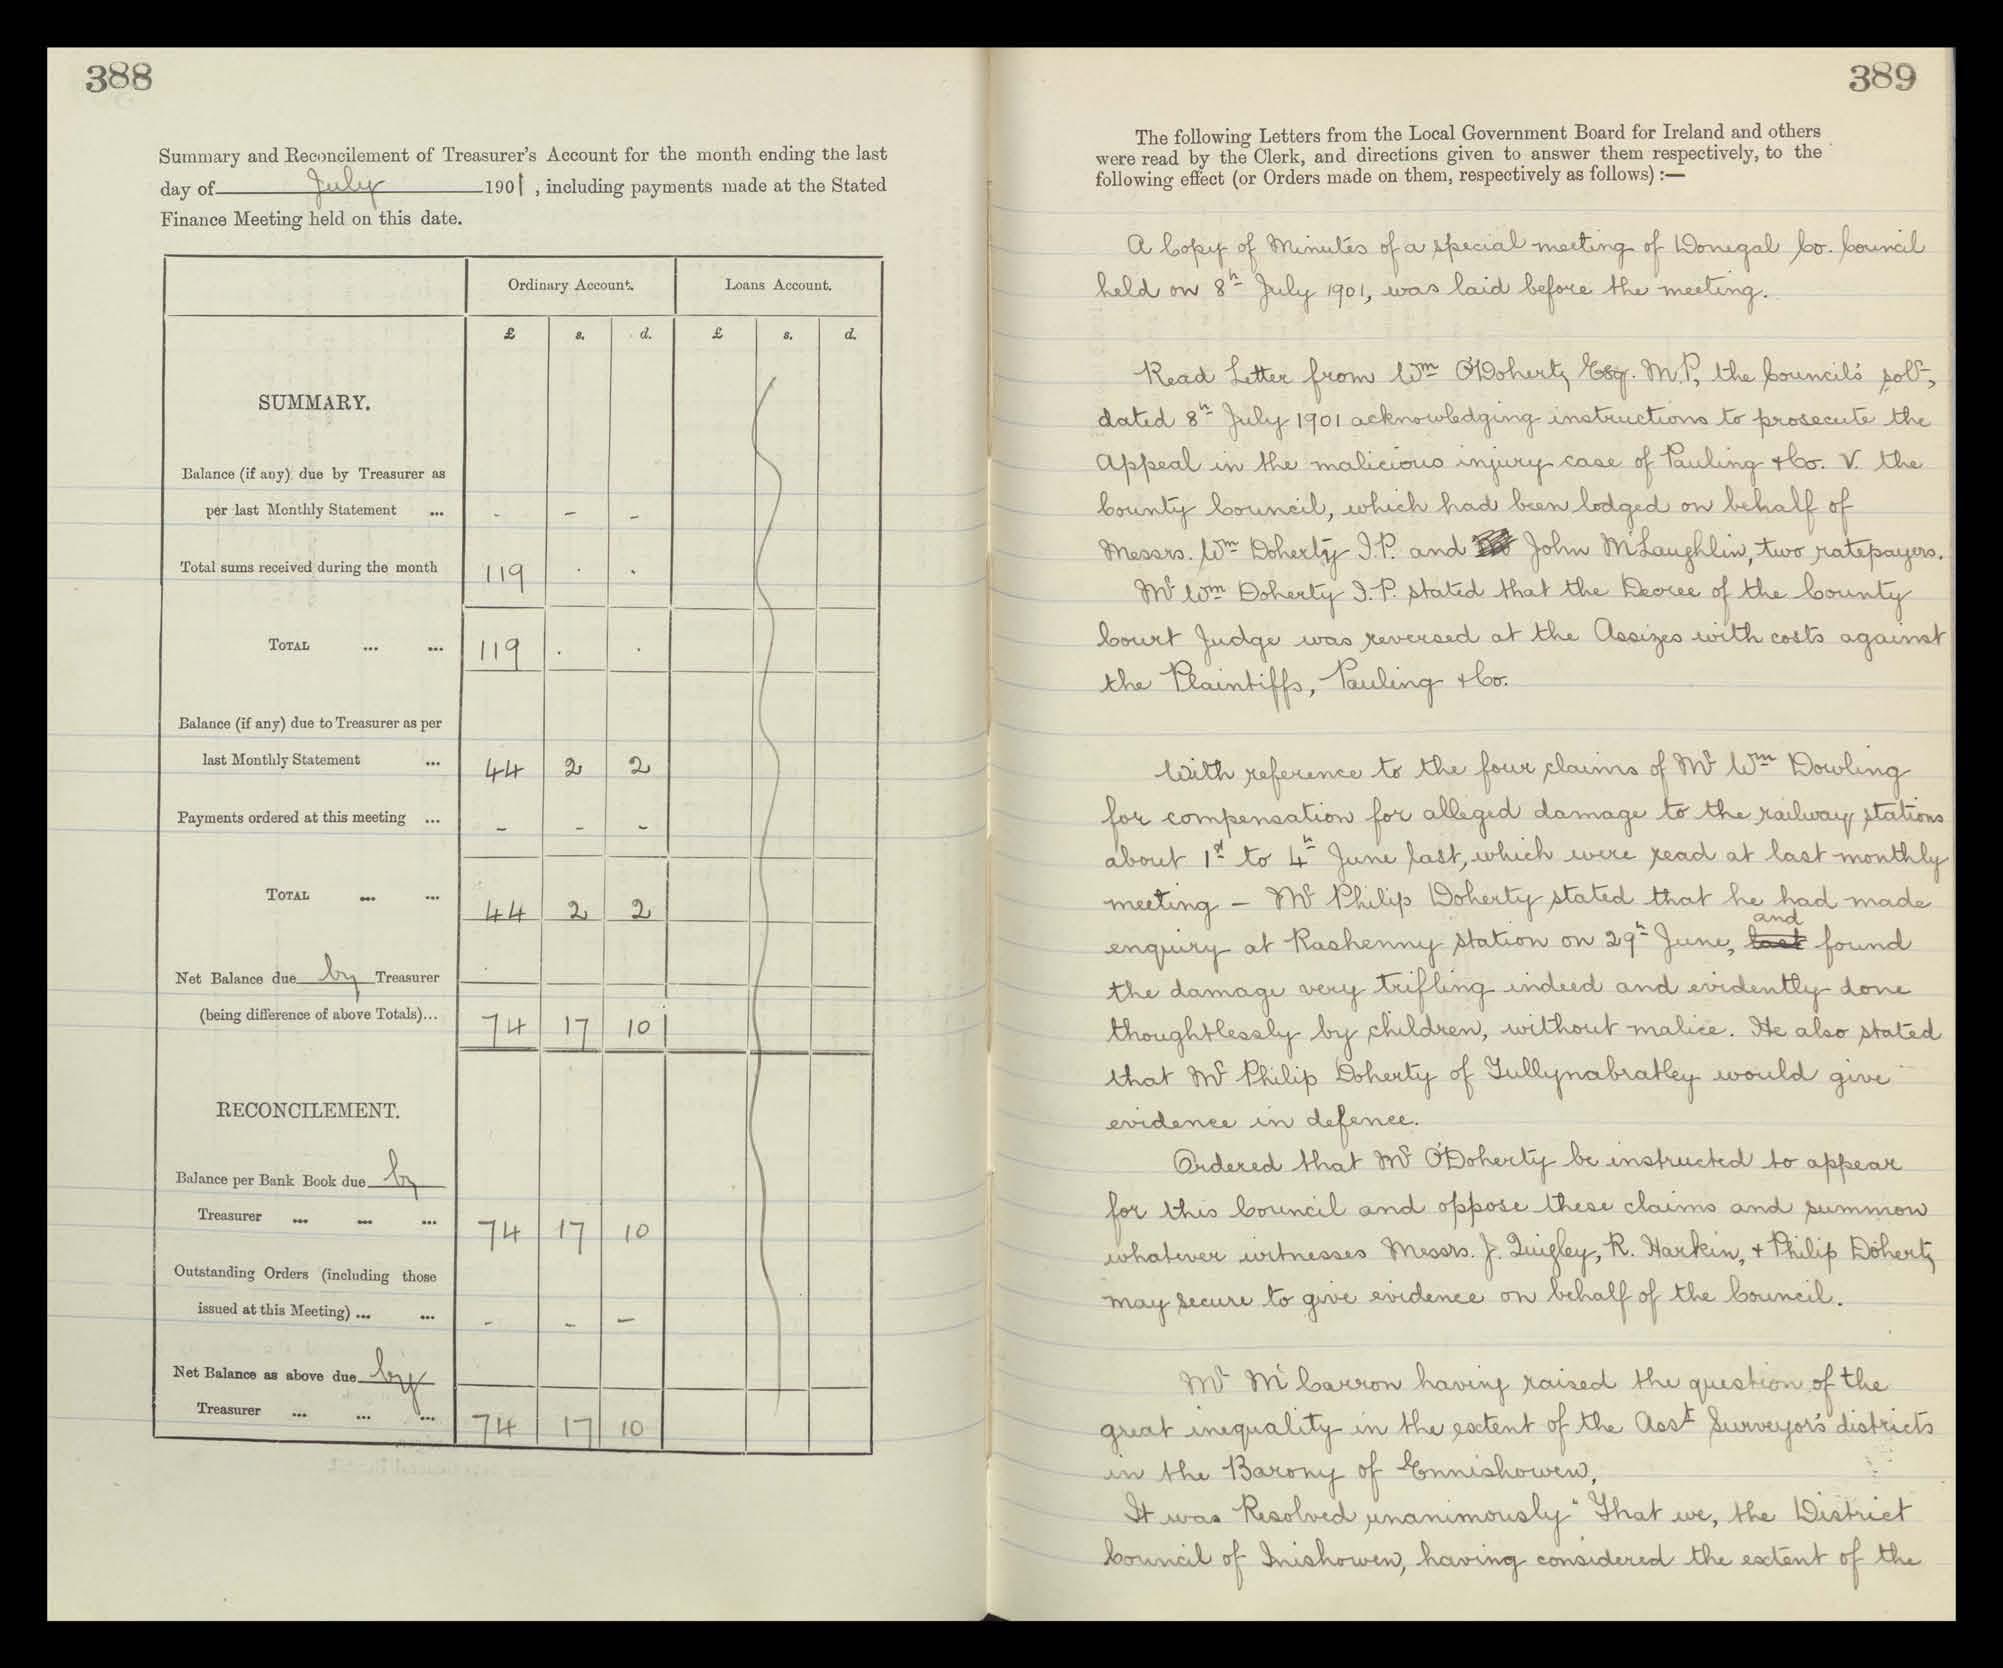 388
Summary and Reconcilement of Treasurer's Account for the month ending the last
day of July 1901, including payments made at the Stated
Finance Meeting held on this date.
Ordinary Account. Loans Account.
£ s. d. £ s. d.
SUMMARY.
Balance (if any) due by Treasurer as
per last Monthly Statement ... - - -
Total sums received during the month 119 . .
TOTAL ... ... 119 . .
Balance (if any) due to Treasurer as per
last Monthly Statement ... 44 2 2
Payments ordered at this meeting ... - - -
TOTAL ... ... 44 2 2
Net Balance due by Treasurer
(being difference of above Totals)... 74 17 10
RECONCILEMENT.
Balance per Bank Book due by
Treasurer ... ... ... 74 17 10
Outstanding Orders (including those
issued at this Meeting) ... ... - - -
Net Balance as above due by
Treasurer ... ... ... 74 17 10
389
The following Letters from the Local Government Board for Ireland and others
were read by the Clerk, and directions given to answer them respectively, to the
following effect (or Orders made on them, respectively as follows) :—
A Copy of Minutes of a special meeting of Donegal Co. Council
held on 8th July 1901, was laid before the meeting.
Read Letter from Wm O'Doherty Esq. M.P, the Council's solr,
dated 8th July 1901 acknowledging instructions to prosecute the
Appeal in the malicious injury case of Pauling & Co. V. the
County Council, which had been lodged on behalf of
Messrs. Wm Doherty J.P. and John McLaughlin, two ratepayers.
Mr Wm Doherty J.P. stated that the Decree of the County
Court Judge was reversed at the Assizes with costs against
the Plaintiffs, Pauling & Co.
With reference to the four claims of Mr Wm Dowling
for compensation for alleged damage to the railway stations
about 1st to 4th June last, which were read at last monthly
meeting – Mr Philip Doherty stated that he had made
enquiry at Rashenny station on 29th June, last and found
the damage very trifling indeed and evidently done
thoughtlessly by children, without malice. He also stated
that Mr Philip Doherty of Tullynabratley would give
evidence in defence.
Ordered that Mr O'Doherty be instructed to appear
for this Council and oppose these claims and summon
whatever witnesses Messrs. J. Quigley, R. Harkin, & Philip Doherty
may secure to give evidence on behalf of the Council.
Mr McCarron having raised the question of the
great inequality in the extent of the Asst Surveyor's districts
in the Barony of Ennishowen,
It was Resolved unanimously "That we, the District
Council of Inishowen, having considered the extent of the